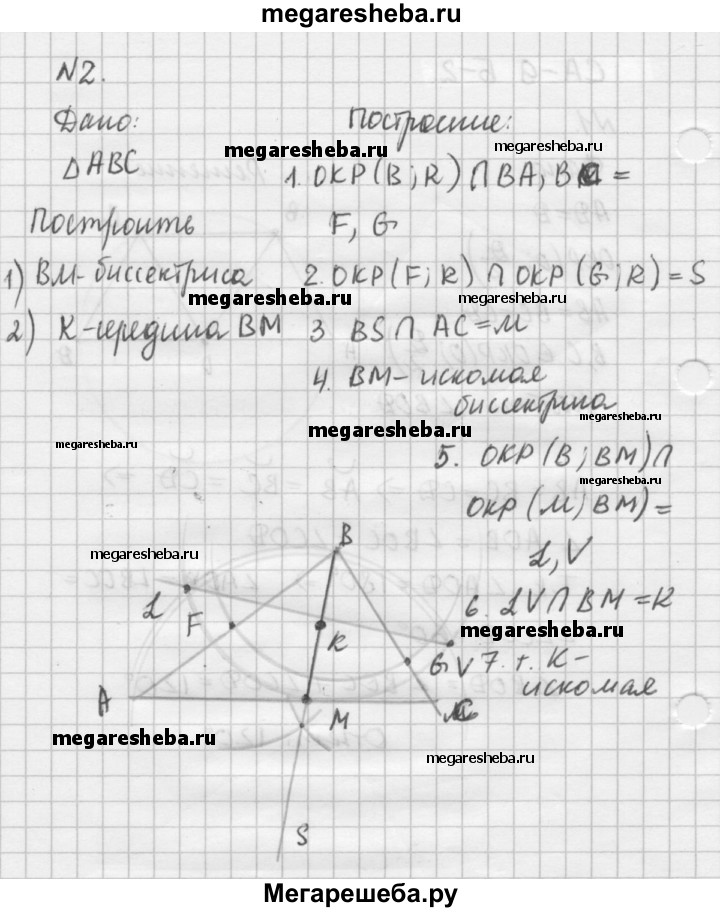 megaresheba.ru
N2.
Дано:
Δ ABC
Построить
1) BM - биссектриса
2) K - середина BM
Построение:
1. ОКР (B; R) ∩ BA, BC =
F, G
2. ОКР (F; R) ∩ ОКР (G; R) = S
3 BS ∩ AC = M
4. BM - искомая
биссектриса
5. ОКР (B; BM) ∩
ОКР (M; BM) =
L, V
6. LV ∩ BM = K
7. т. K -
искомая
B
L
F
K
G V
A
M
C
S
megaresheba.ru
megaresheba.ru
megaresheba.ru
megaresheba.ru
megaresheba.ru
megaresheba.ru
megaresheba.ru
megaresheba.ru
megaresheba.ru
megaresheba.ru
megaresheba.ru
megaresheba.ru
Мегарешеба.ру